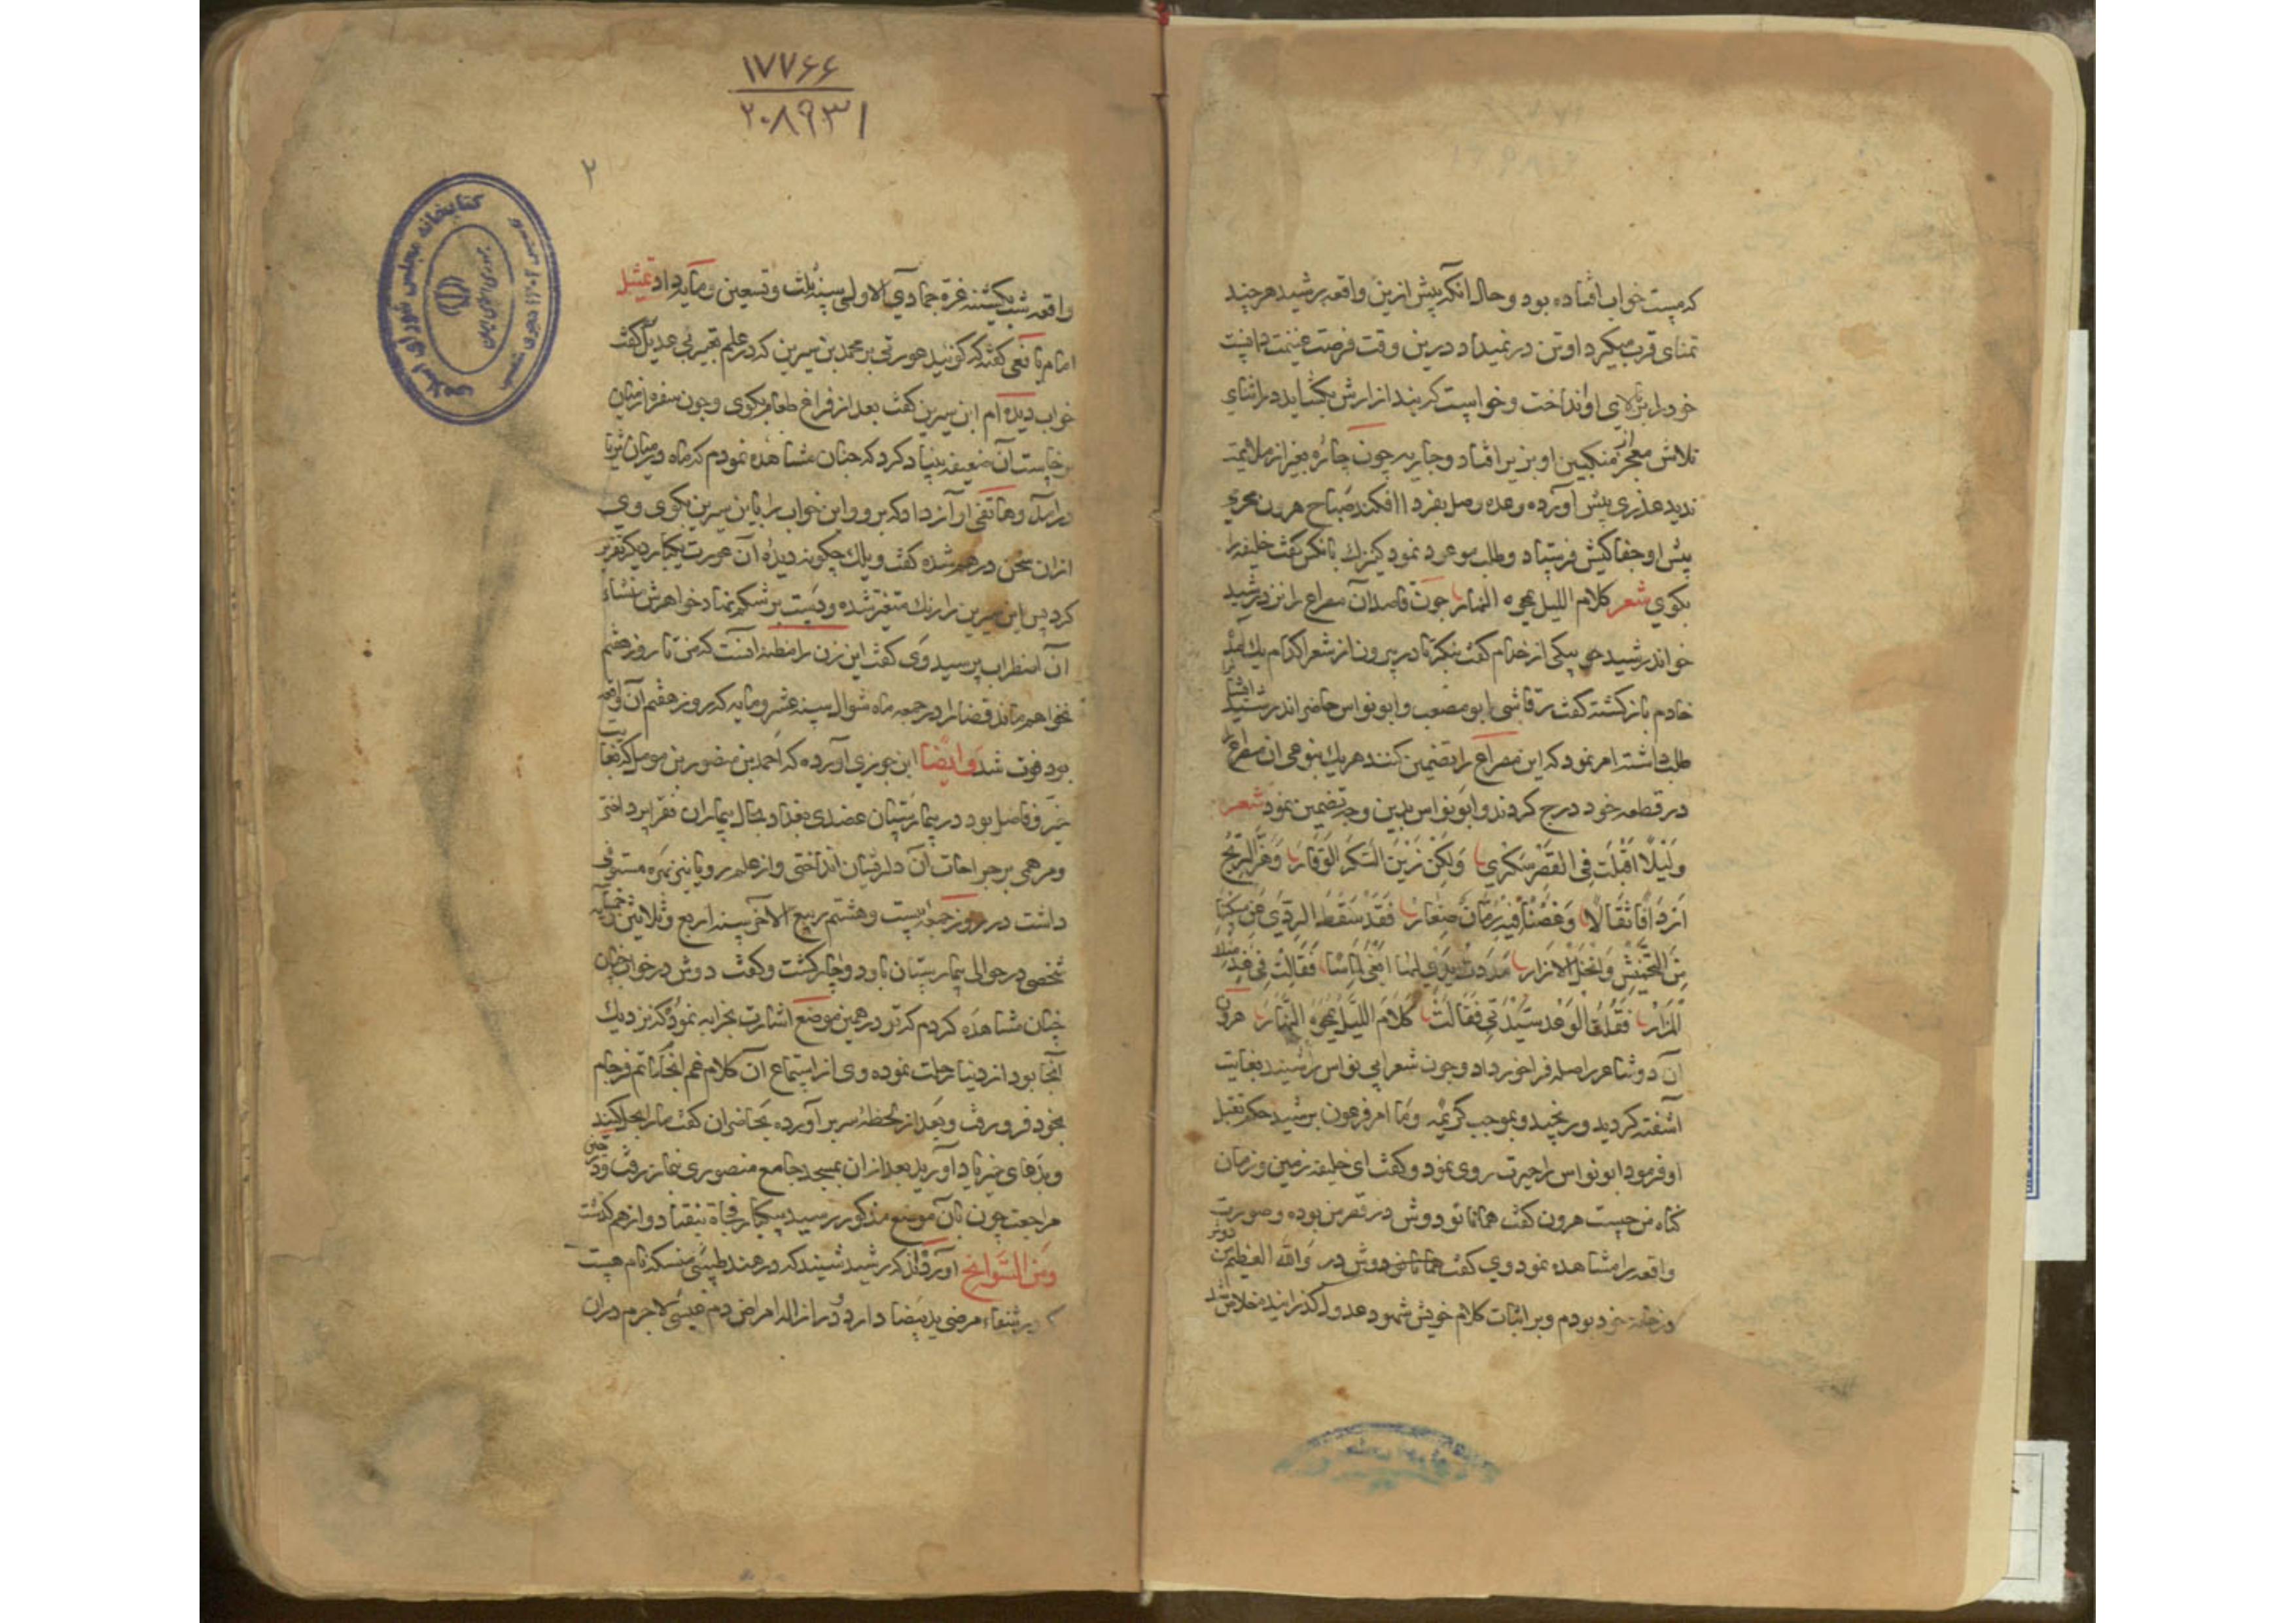 که مست خواب افتاده بود و حال آنکه پیش ازین واقعه رشید هرچند
تمنای قرب میکرد او تن در نمیداد درین وقت فرصت غنیمت دانست
خود را بر بالای او انداخت و خواست که بند ازارش بگشاید در اثنای
تلاش معجر از منکبین او بزیر افتاد و جاریه چون چاره بغیر از ملایمت
ندید عذری پیش آورده وعده وصل بفردا افکند صباح هرون محرمی
پیش او جفاکیش فرستاد و طلب موعود نمود کنیزک بآنکس گفت خلیفه را
بکوی شعر کلام اللیل یمحوه النهار چون قاصد آن مصراع را نزد رشید
خواند رشید جو بیکی از خدام گفت بنگر تا در بیرون از شعرا کدام یک آمده
خادم بازگشته گفت رقاشی ابومصعب و ابونواس حاضراند رشید ایشانرا
طلب داشته امر نمود که این مصراع را تضمین کنند هر یک بنوعی آن مصراع را
در قطعه خود درج کردند و ابونواس بدین وجه تضمین نمود شعر
ولیلا اقبلت فی القصر سکری ولکن زین السکر الوقار وهز الریح
اردافا ثقالا وغصنا فیه رمان صغار فقد سقط الردی عن منکبها
من التخمیش وانحل الازار مددت یدی لها ابغی التماسا فقالت فی غد منک
المزار فقلت الوعد سیدتی فقالت کلام اللیل یمحوه النهار هرون
آن دو شاعر را صله فراخور داد و چون شعر ابی نواس را شنید بغایت
آشفته کردید و رنجید و بموجب کریمه وما امر فرعون برشید حکم بقتل
او فرمود ابونواس را حیرت روی نمود و گفت ای خلیفه زمین و زمان
گناه من چیست هرون گفت همانا تو دوش در قصر من بوده و صورت
واقعه را مشاهده نموده وی گفت همانا من دوش در والله العظیم من دوش
در خانه خود بودم و بر اثبات کلام خویش شهود عدول گذرانید خلاص شد
۱۷۷۶۶
۲۰۸۹۳۱
۲
کتابخانه مجلس شورای اسلامی
جمهوری اسلامی ایران
واقعه شب یکشنبه غره جمادی الاولی سنه ثلث و تسعین و مایه داد تمثیل
امام یافعی گفته که گویند عورتی بر محمد بن سیرین که در علم تعبیر بی عدیل گفت
خواب دیده ام ابن سیرین گفت بعد از فراغ طعام بکوی و چون سفره از میان
برخاست آن ضعیفه بنیاد کرد که چنان مشاهده نمودم که ماه در میان ثریا
درآمد و هاتفی آواز داد که برو و این خواب را با ابن سیرین بکوی وی
از آن سخن درهم شده گفت ویلک چگونه دیده آن عورت یکبار دیگر تقریر
کرد پس ابن سیرین را رنگ متغیر شده و دست بر شکم نهاد خواهرش منشاء
آن اضطراب پرسید وی گفت این زن را مظنه آنست که من تا روز هفتم
نخواهم ماند قضا را در جمعه ماه شوال سنه عشر و مایه که روز هفتم آن واقعه
بود فوت شد وایضا ابن جوزی آورده که احمد بن منصور بن موسی که بغایت
خیر و فاضل بود در بیمارستان عضدی بغداد بحال بیماران فقرا پرداختی
و مرهمی بر جراحات آن دلریشان انداختی و از علم رویا نیز بهره مستوفی
داشت در روز جمعه بیست و هشتم ربیع الآخر سنه اربع و ثلاثین و خمسمایه
شخصی در حوالی بیمارستان باو دوچار گشت و گفت دوش در خواب
چنان مشاهده کردم که تو در همین موضع اشارت بخرابه نمود که نزدیک
آنجا بود از دنیا رحلت نموده وی از استماع آن کلام غم انجام ناتم فرجام
بخود فرو رفت و بعد از لحظه سر برآورده بحاضران گفت مارا بحل کنید
و بدعای خیر یاد آورید بعد از آن بمسجد جامع منصوری بنماز رفت و در حین
مراجعت چون بآن موضع مذکور رسید بیکبار فجاة بیفتاد و از هم گذشت
ومن السوانح آورده اند که رشید شنید که در هند طبیبی منسکه نام هست
که در شفاء مرضی ید بیضا دارد و در ازاله امراض دم عیسی لاجرم دران